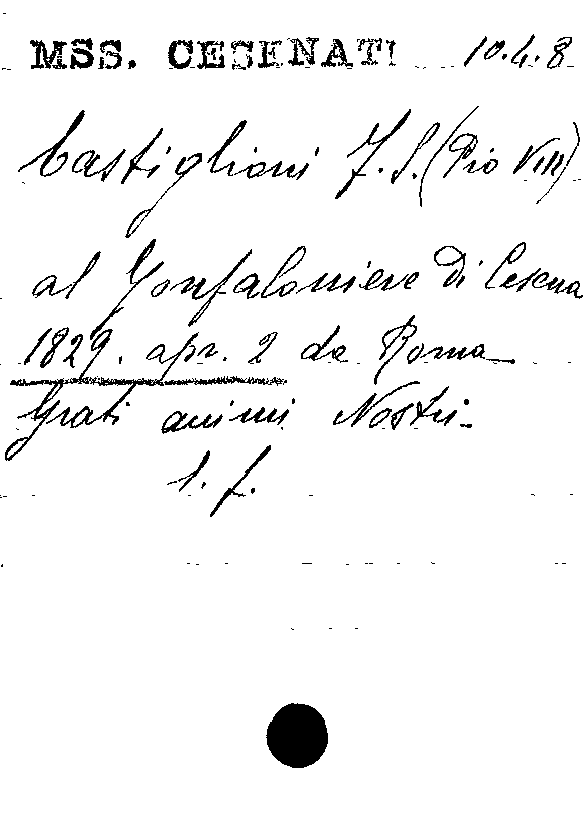 MSS. CESENATI 10.4.8
Castiglioni F. S. (Pio VIII)
al Gonfaloniere di Cesena
1829. apr. 2 da Roma
Grati animi Nostri
l. f.